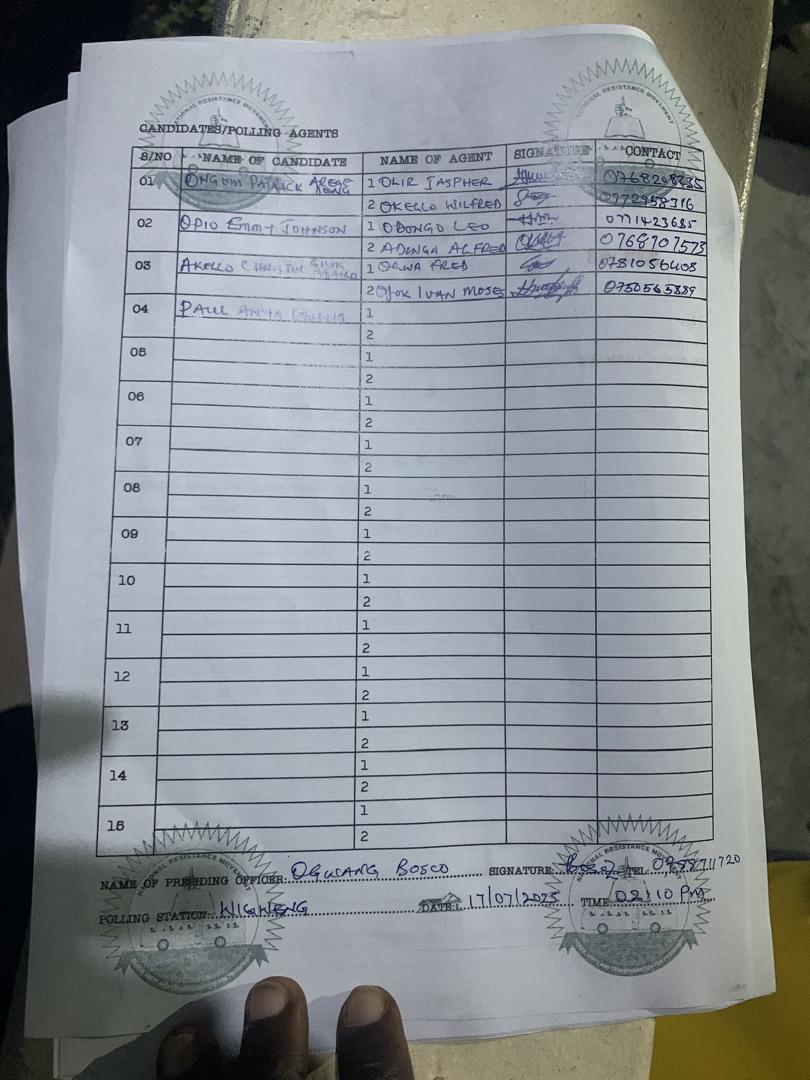 NATIONAL RESISTANCE MOVEMENT
NATIONAL RESISTANCE MOVEMENT
CANDIDATES/POLLING AGENTS
S/NO NAME OF CANDIDATE NAME OF AGENT SIGNATURE CONTACT
01 ONGOM PATRICK 1 OLIR JASPHER
2 OKELLO WILFRED 0772958316
02 OPIO Emmy JOHNSON 1 ODONGO LEO 0771423685
2 ADUNGA ALFRED 0768707573
03 AKELLO 1 OKWA FRED 0781056408
2 OJOK IVAN MOSES 0750565889
04 PAUL 1
2
05 1
2
06 1
2
07 1
2
08 1
2
09 1
2
10 1
2
11 1
2
12 1
2
13 1
2
14 1
2
15 1
2
NAME OF PRESIDING OFFICER: OGWANG BOSCO SIGNATURE: TEL:
POLLING STATION: WIGWENG DATE: 17/07/2025 TIME: 02:10 PM
NATIONAL RESISTANCE MOVEMENT
NATIONAL RESISTANCE MOVEMENT